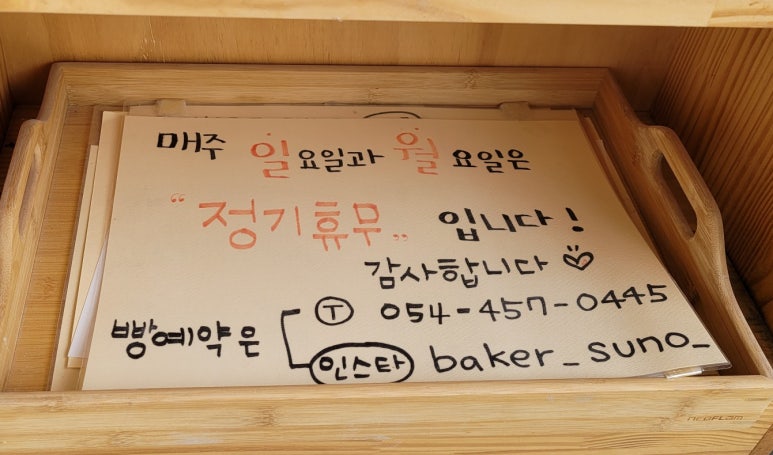 매주 일요일과 월요일은
“정기휴무” 입니다!
감사합니다
빵예약은 T 054-457-0445
인스타 baker_suno_
NEOFLAM